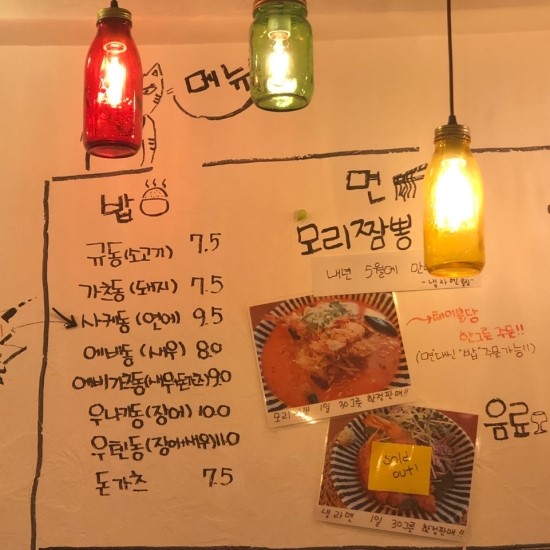 메뉴
밥
규동(소고기) 7.5
가츠동(돼지) 7.5
사케동(연어) 9.5
에비동(새우) 8.0
에비가츠동(새우돈까스) 9.0
우나기동(장어) 10.0
우텐동(장어+새우) 11.0
돈가츠 7.5
면
모리짬뽕
내년 5월에
-냉라멘
테이블당
한그릇 주문!!
(면대신 "밥" 주문가능!!)
1일 30그릇 한정판매!!
음료
sold
out!
냉라멘 1일 30그릇 한정판매!!